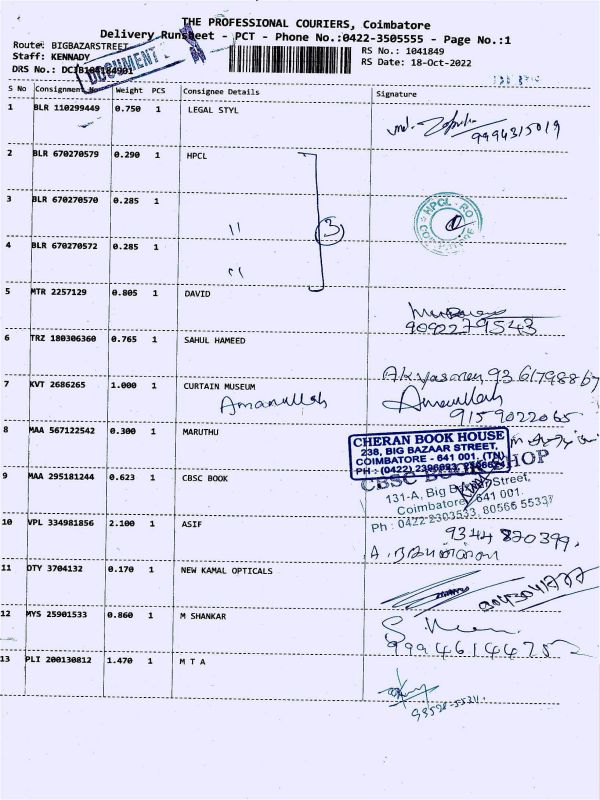 THE PROFESSIONAL COURIERS, Coimbatore
Delivery Runsheet - PCT - Phone No.:0422-3505555 - Page No.:1
Route: BIGBAZARSTREET
RS No.: 1041849
Staff: KENNADY
RS Date: 18-Oct-2022
DRS No.:
DOCUMENT
S No Consignment No Weight PCS Consignee Details Signature
1 BLR 110299449 0.750 1 LEGAL STYL
9994315019
2 BLR 670270579 0.290 1 HPCL
3 BLR 670270570 0.285 1 " 3
HPCL - RO
4 BLR 670270572 0.285 1 "
5 MTR 2257129 0.805 1 DAVID
9092279543
6 TRZ 180306360 0.765 1 SAHUL HAMEED
7 KVT 2686265 1.000 1 CURTAIN MUSEUM
Amanullah Amanullah
9159022065
8 MAA 567122542 0.300 1 MARUTHU
CHERAN BOOK HOUSE
238, BIG BAZAAR STREET,
COIMBATORE - 641 001. (TN)
PH : (0422)
9 MAA 295181244 0.623 1 CBSC BOOK
CBSC BOOK SHOP
131-A, Big Bazaar Street,
Coimbatore - 641 001.
Ph : 0422 2303533, 80566 55337
10 VPL 334981856 2.100 1 ASIF
9344 820399.
11 OTY 3704132 0.170 1 NEW KAMAL OPTICALS
12 MYS 25901533 0.860 1 M SHANKAR
99946144752
13 PLI 200130812 1.470 1 M T A